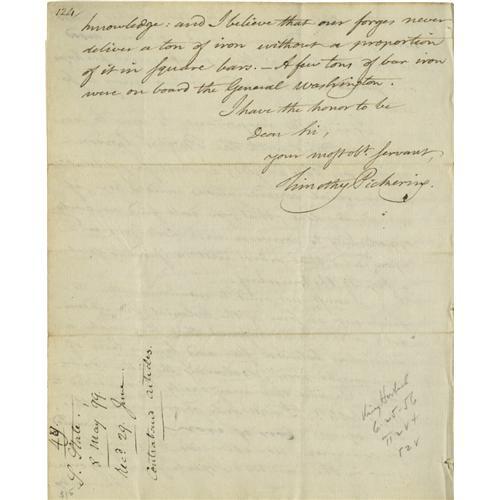 124
knowledge: and I believe that our forges never
deliver a ton of iron without a proportion
of it in square bars. — A few tons of bar iron
were on board the General Washington.
I have the honor to be
Dear Sir,
your most obt. servant,
Timothy Pickering.
49
S. State.
8 May 99
Recd 29 June
Contraband articles.
6-25-56